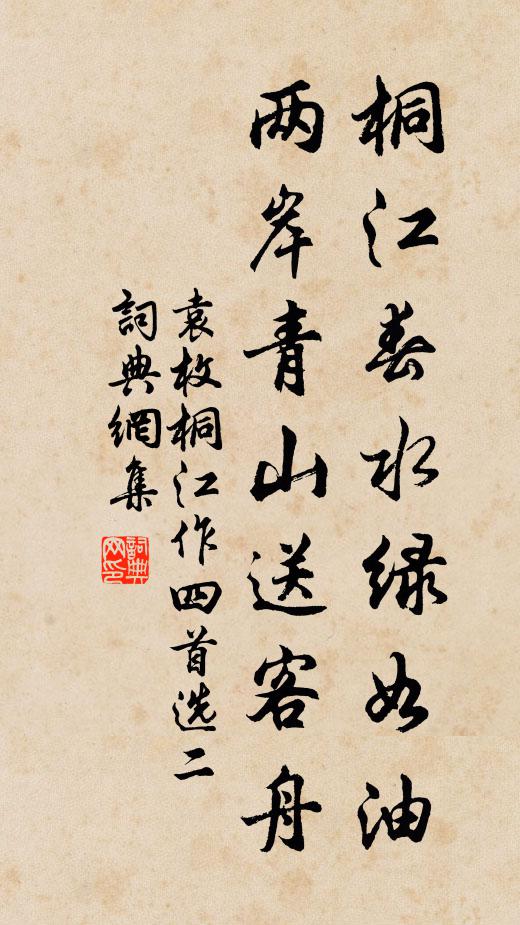 桐江春水绿如油
两岸青山送客舟
袁枚桐江作四首选二
詞典網集
詞典
网印